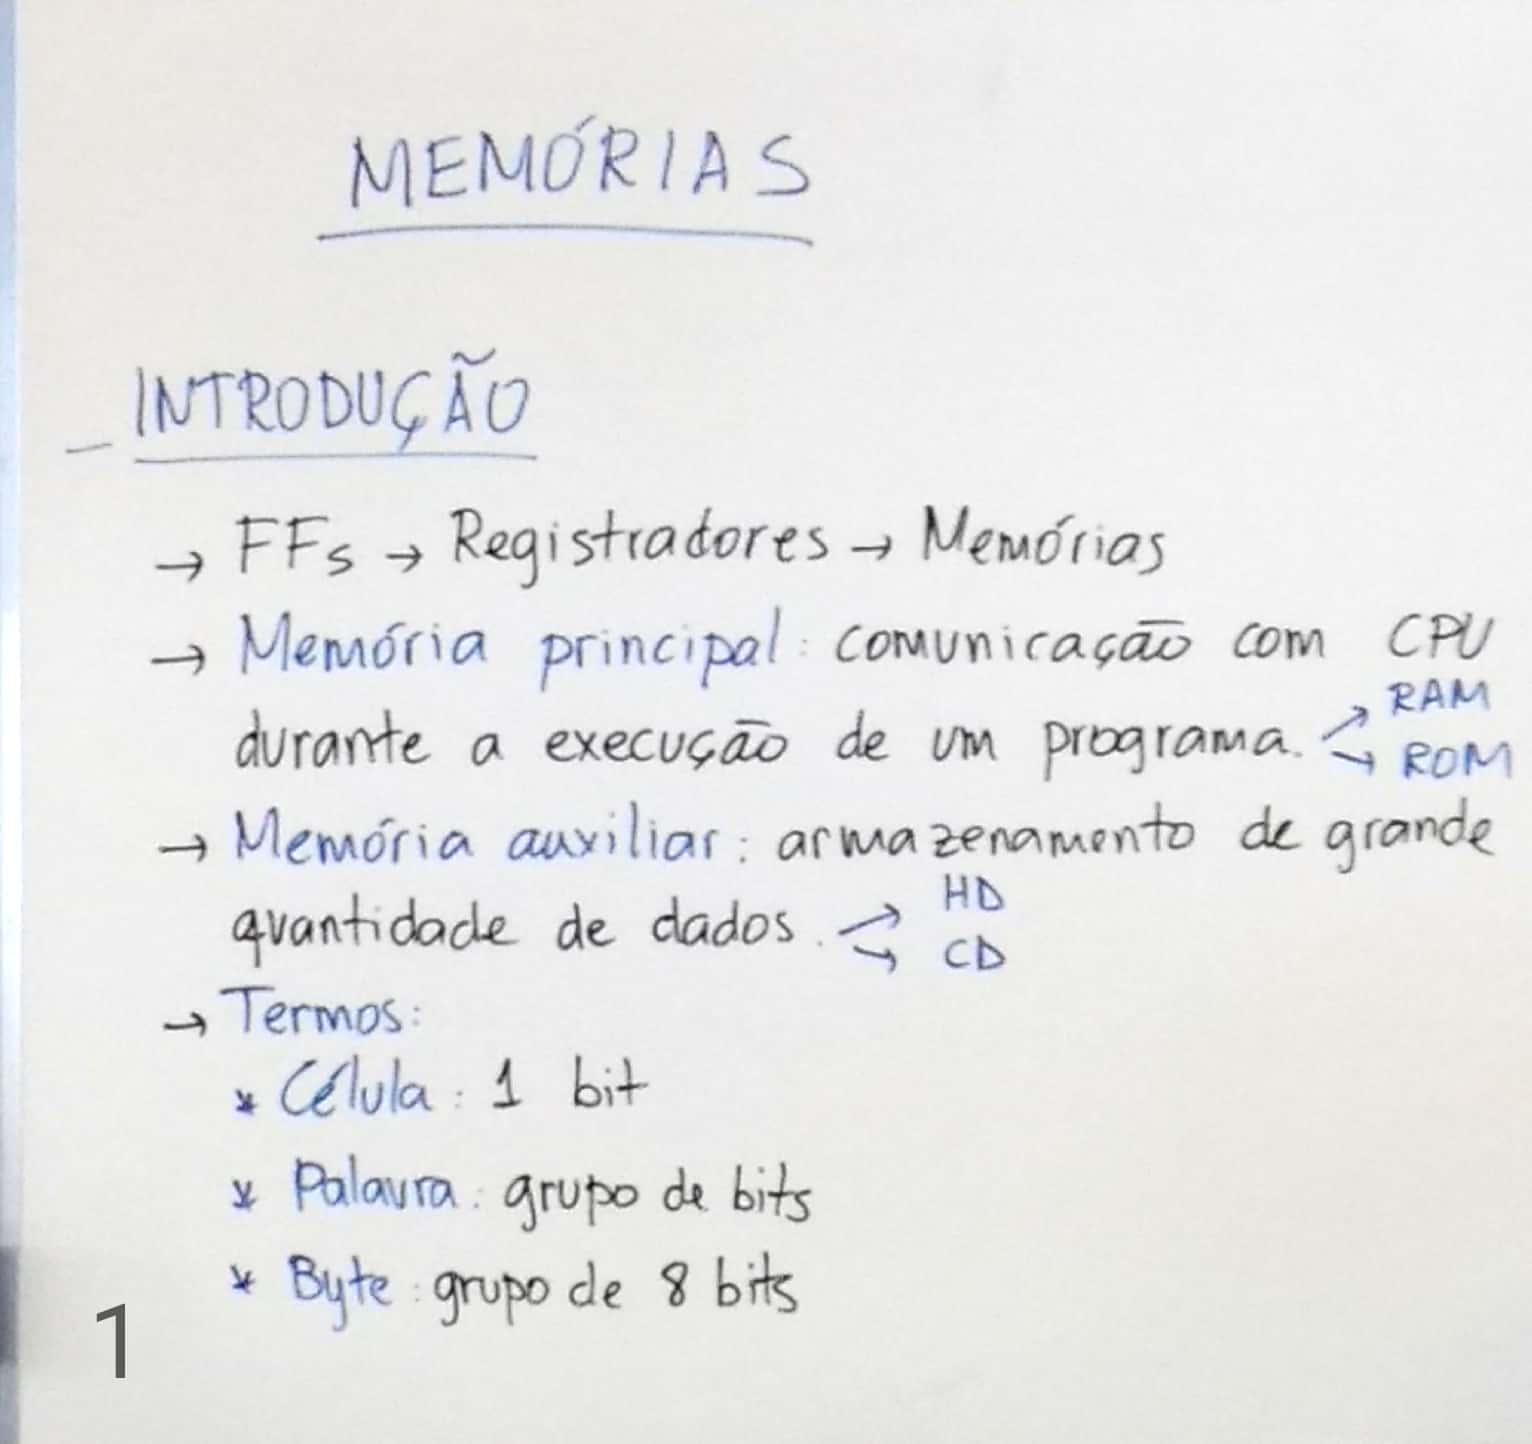 MEMÓRIAS
INTRODUÇÃO
→ FFs → Registradores → Memórias
→ Memória principal: comunicação com CPU
durante a execução de um programa. → RAM
→ ROM
→ Memória auxiliar: armazenamento de grande
quantidade de dados. → HD
→ CD
→ Termos:
* Célula: 1 bit
* Palavra: grupo de bits
* Byte: grupo de 8 bits
1